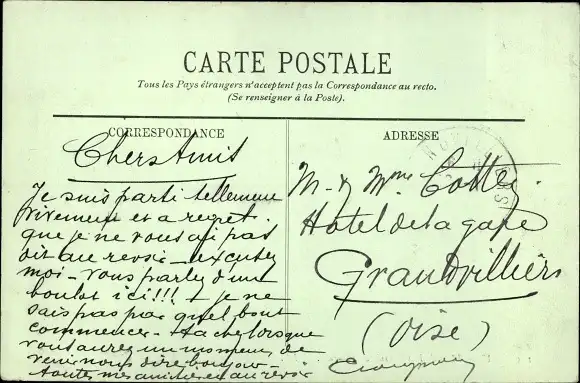 CARTE POSTALE
Tous les Pays étrangers n'acceptent pas la Correspondance au recto.
(Se renseigner à la Poste).
CORRESPONDANCE
Chers Amis
Je suis parti tellement
vivement et a regret.
que je ne vous ai pas
dit au revoir - excusez
moi - vous parlez d'un
boulot ici!!! et je ne
sais pas par quel bout
commencer - tachez lorsque
vous aurez un moment de
venir nous dire bonjour -
toutes mes amities et au revoir
ADRESSE
M. & Mme
Hotel de la gare
Grandvilliers
(Oise)